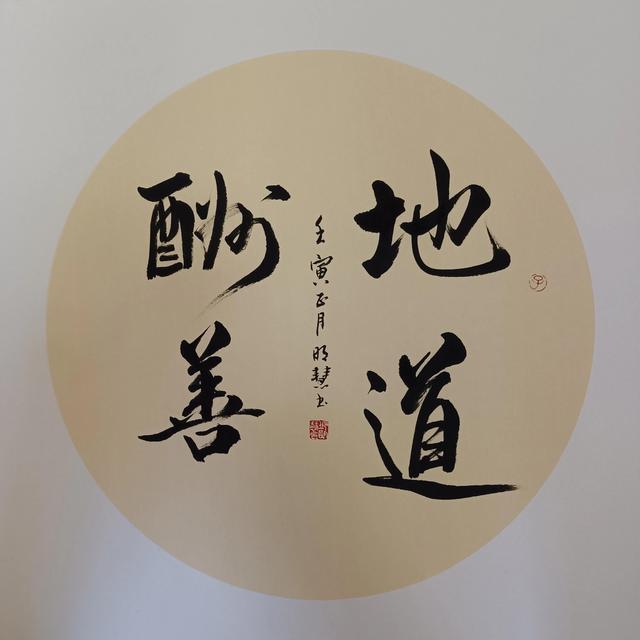 地道
酬善
壬寅正月明慧书